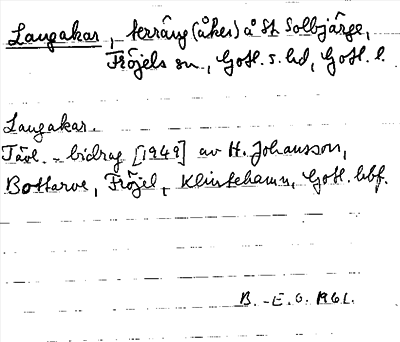 Laugakar, terräng (åker) å St Solbjärge,
Fröjels sn., Gotl. s. hd, Gotl. l.
Laugakar.
Tävl.-bidrag [1949] av H. Johansson,
Bottarve, Fröjel, Klintehamn, Gotl. hbf.
B.-E. O. 1961.